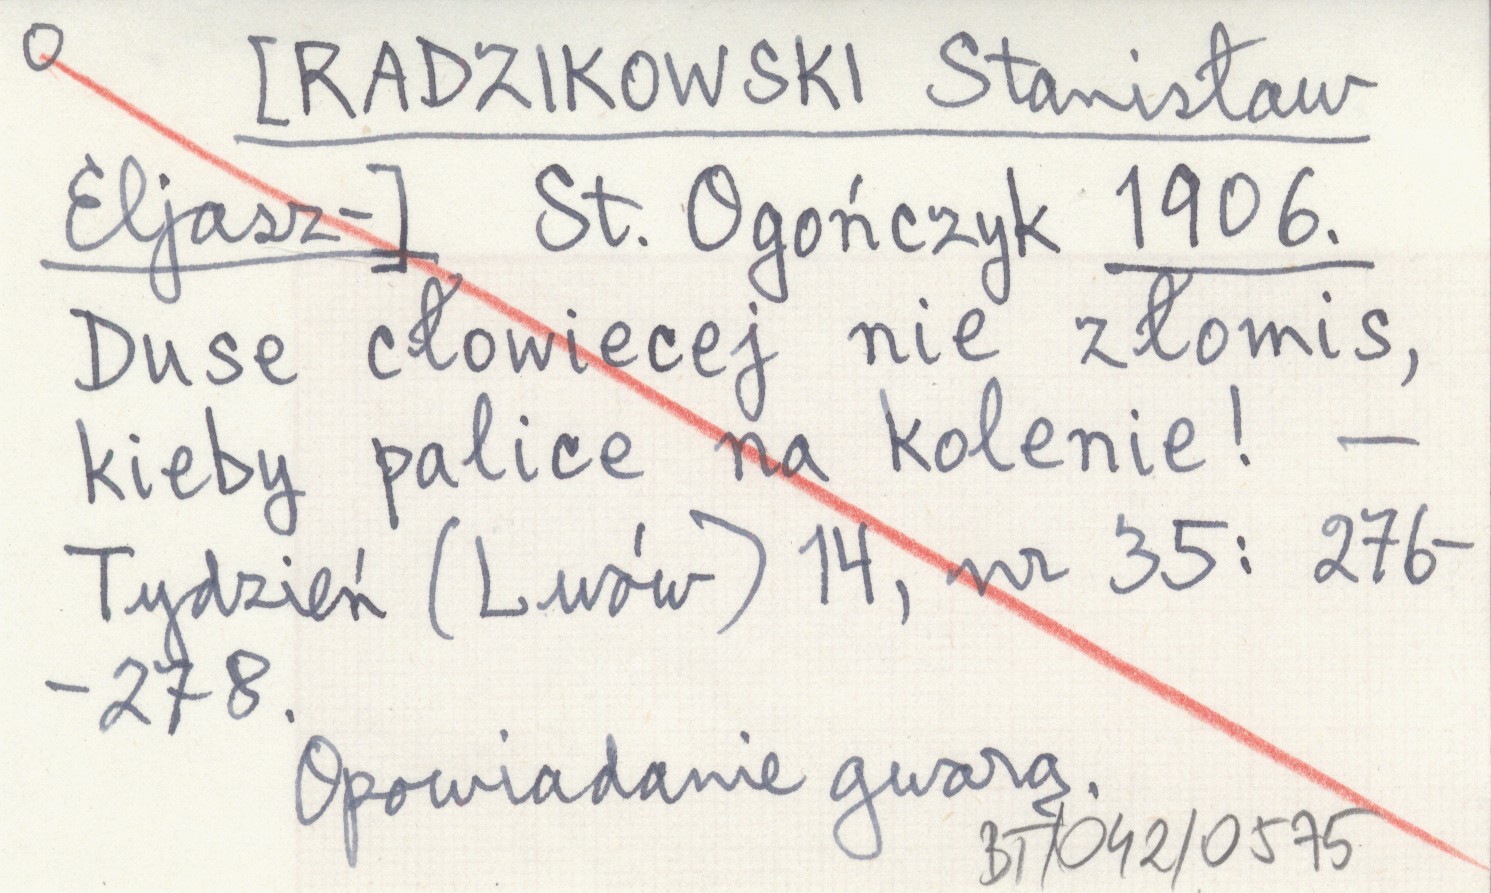 O [RADZIKOWSKI Stanisław
Eljasz-] St. Ogończyk 1906.
Duse cłowiecej nie złomis,
kieby palice na kolenie! —
Tydzień (Lwów) 14, nr 35: 276-
-278.
Opowiadanie gwarą.
BT/042/0575